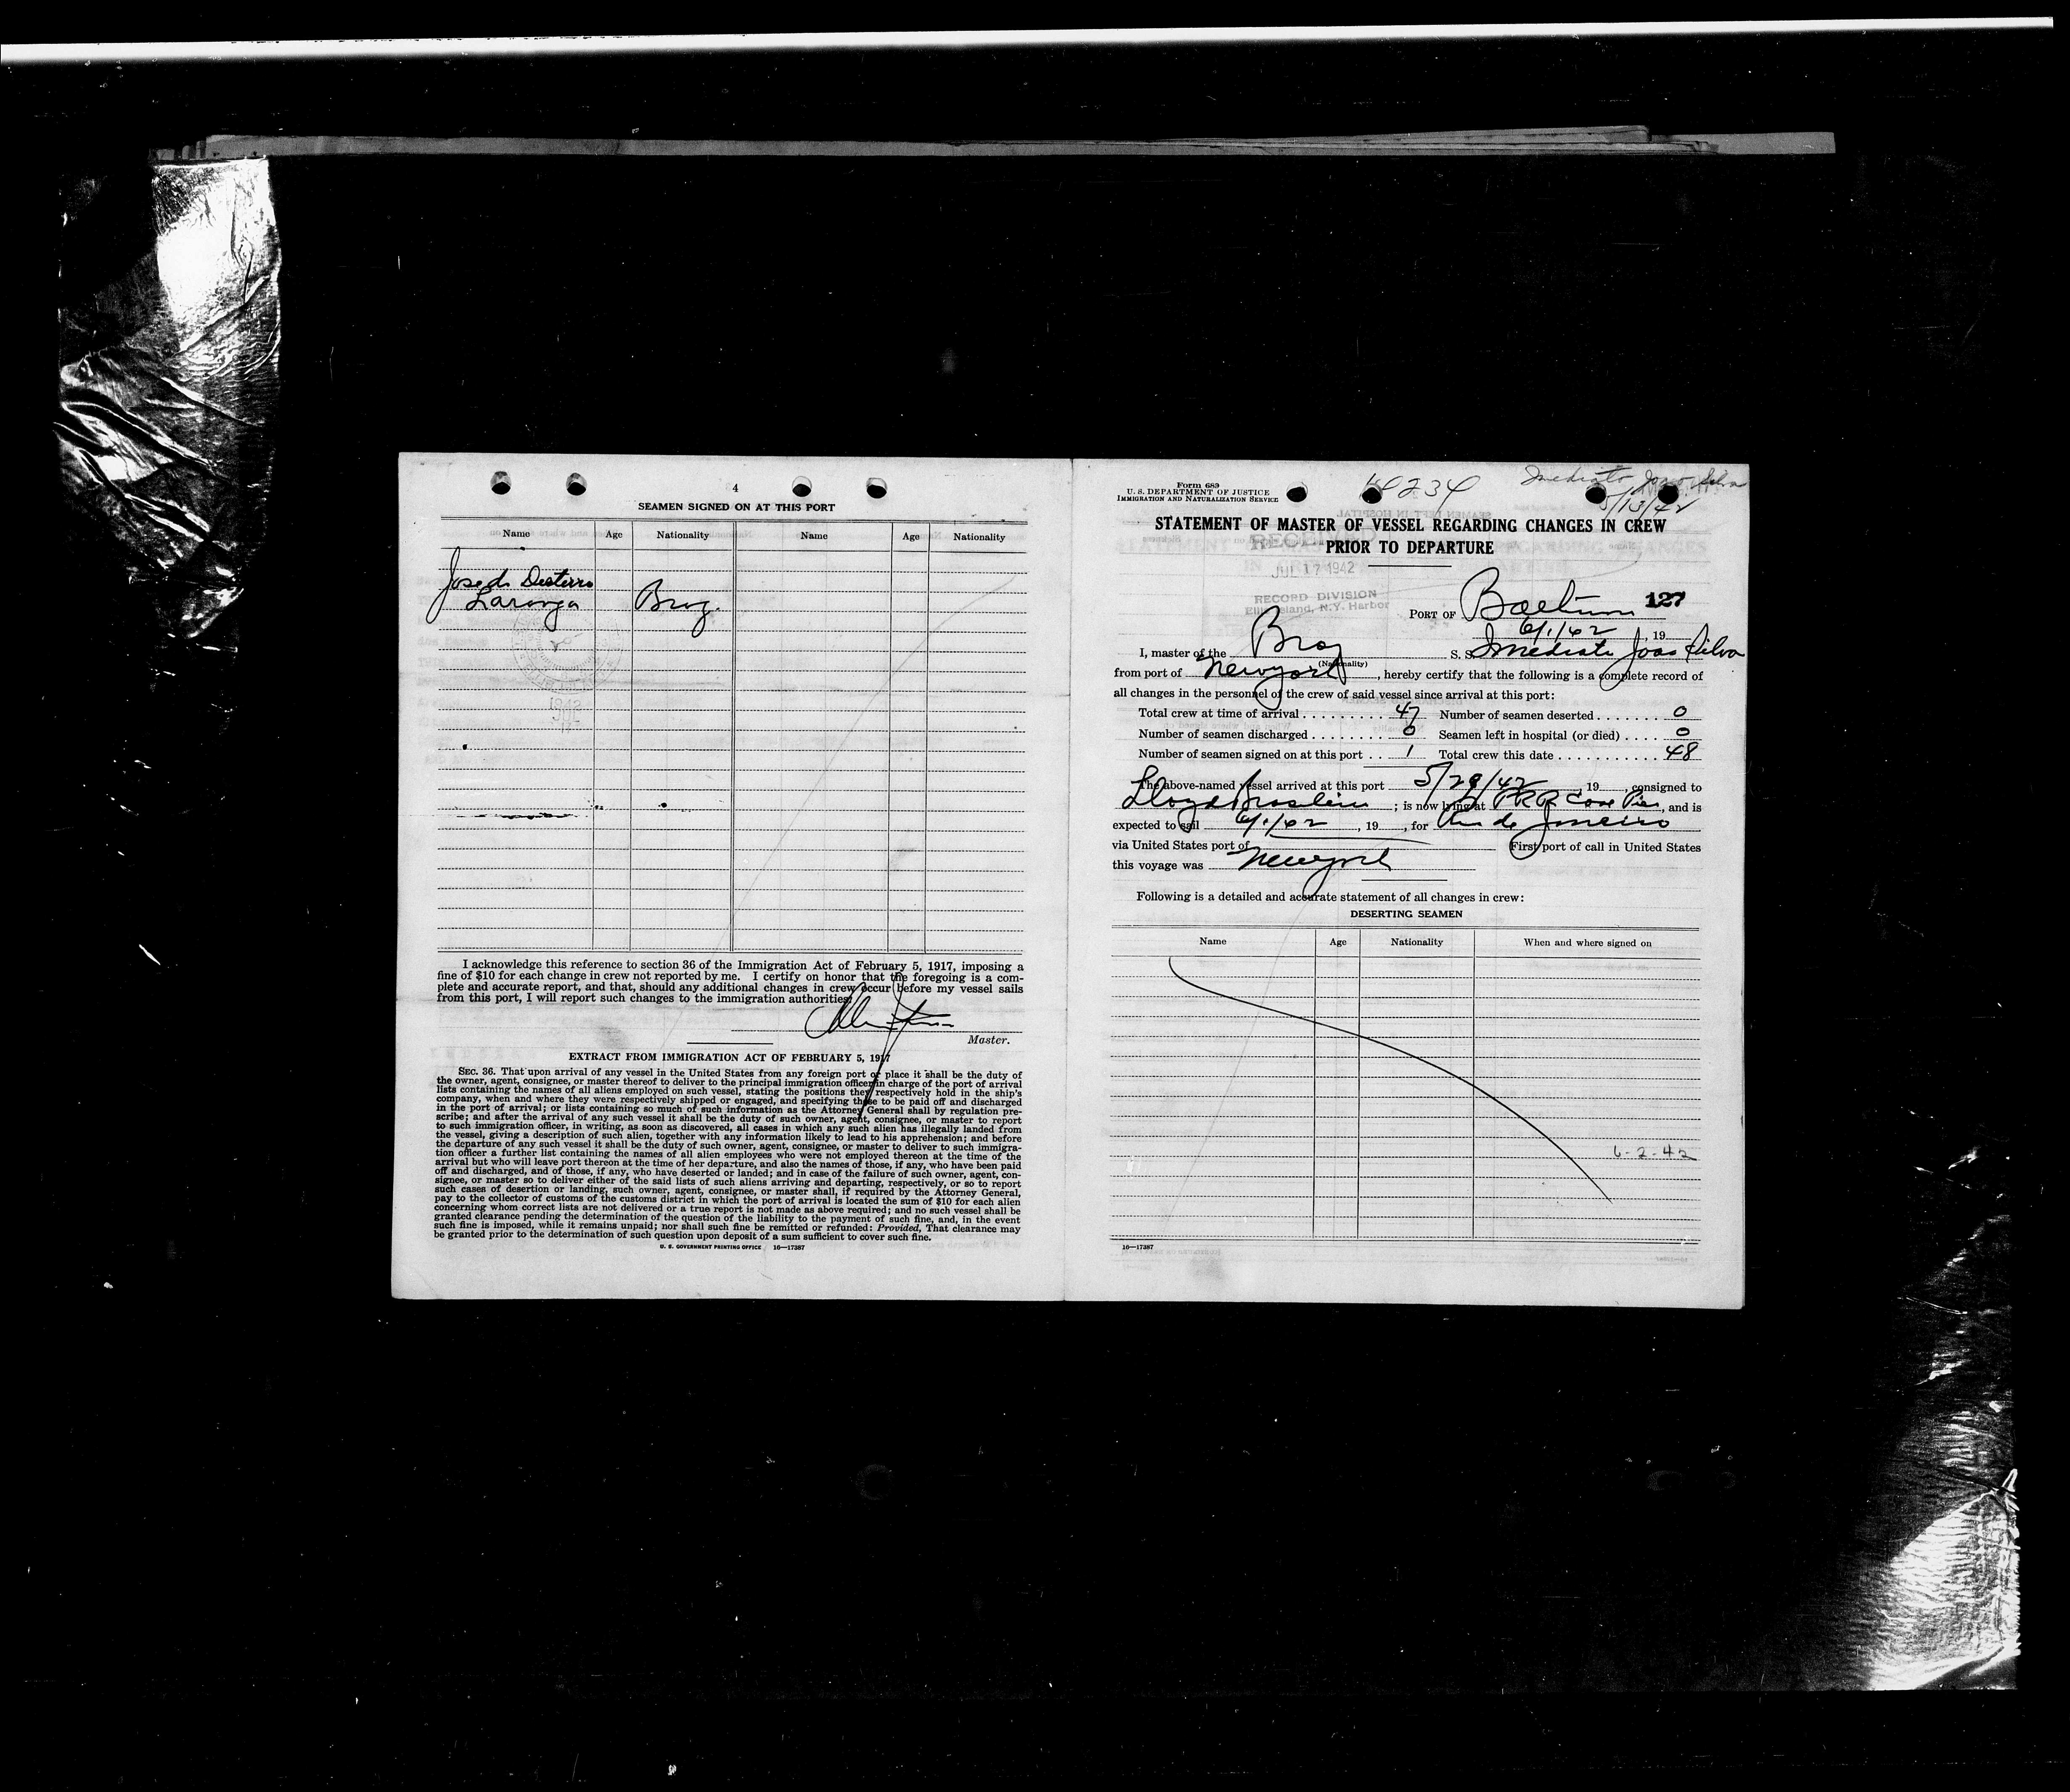 4
SEAMEN SIGNED ON AT THIS PORT
Name Age Nationality Name Age Nationality
José do Desterro
Laranga Braz.
1942
I acknowledge this reference to section 36 of the Immigration Act of February 5, 1917, imposing a
fine of $10 for each change in crew not reported by me. I certify on honor that the foregoing is a com-
plete and accurate report, and that, should any additional changes in crew occur before my vessel sails
from this port, I will report such changes to the immigration authorities.
Master.
EXTRACT FROM IMMIGRATION ACT OF FEBRUARY 5, 1917
SEC. 36. That upon arrival of any vessel in the United States from any foreign port or place it shall be the duty of
the owner, agent, consignee, or master thereof to deliver to the principal immigration officer in charge of the port of arrival
lists containing the names of all aliens employed on such vessel, stating the positions they respectively hold in the ship's
company, when and where they were respectively shipped or engaged, and specifying those to be paid off and discharged
in the port of arrival; or lists containing so much of such information as the Attorney General shall by regulation pre-
scribe; and after the arrival of any such vessel it shall be the duty of such owner, agent, consignee, or master to report
to such immigration officer, in writing, as soon as discovered, all cases in which any such alien has illegally landed from
the vessel, giving a description of such alien, together with any information likely to lead to his apprehension; and before
the departure of any such vessel it shall be the duty of such owner, agent, consignee, or master to deliver to such immigra-
tion officer a further list containing the names of all alien employees who were not employed thereon at the time of the
arrival but who will leave port thereon at the time of her departure, and also the names of those, if any, who have been paid
off and discharged, and of those, if any, who have deserted or landed; and in case of the failure of such owner, agent, con-
signee, or master so to deliver either of the said lists of such aliens arriving and departing, respectively, or so to report
such cases of desertion or landing, such owner, agent, consignee, or master shall, if required by the Attorney General,
pay to the collector of customs of the customs district in which the port of arrival is located the sum of $10 for each alien
concerning whom correct lists are not delivered or a true report is not made as above required; and no such vessel shall be
granted clearance pending the determination of the question of the liability to the payment of such fine, and, in the event
such fine is imposed, while it remains unpaid; nor shall such fine be remitted or refunded: Provided, That clearance may
be granted prior to the determination of such question upon deposit of a sum sufficient to cover such fine.
U. S. GOVERNMENT PRINTING OFFICE 16—17387
Form 689
U. S. DEPARTMENT OF JUSTICE
IMMIGRATION AND NATURALIZATION SERVICE
Imediato Joao Silva
5/13/42
STATEMENT OF MASTER OF VESSEL REGARDING CHANGES IN CREW
PRIOR TO DEPARTURE
RECEIVED
JUL 17 1942
RECORD DIVISION
Ellis Island, N.Y. Harbor
PORT OF Baltimore 127
6/1/42, 19
I, master of the Braz S. S. Imediato Joao Silva
(Nationality)
from port of New York, hereby certify that the following is a complete record of
all changes in the personnel of the crew of said vessel since arrival at this port:
Total crew at time of arrival 47 Number of seamen deserted 0
Number of seamen discharged 0 Seamen left in hospital (or died) 0
Number of seamen signed on at this port 1 Total crew this date 48
The above-named vessel arrived at this port 5/29/42, 19, consigned to
Lloyd Brasileiro; is now lying at PRR Coal Pier, and is
expected to sail 6/1/42, 19, for Rio de Janeiro
via United States port of First port of call in United States
this voyage was New York
Following is a detailed and accurate statement of all changes in crew:
DESERTING SEAMEN
Name Age Nationality When and where signed on
6-2-42
16—17387